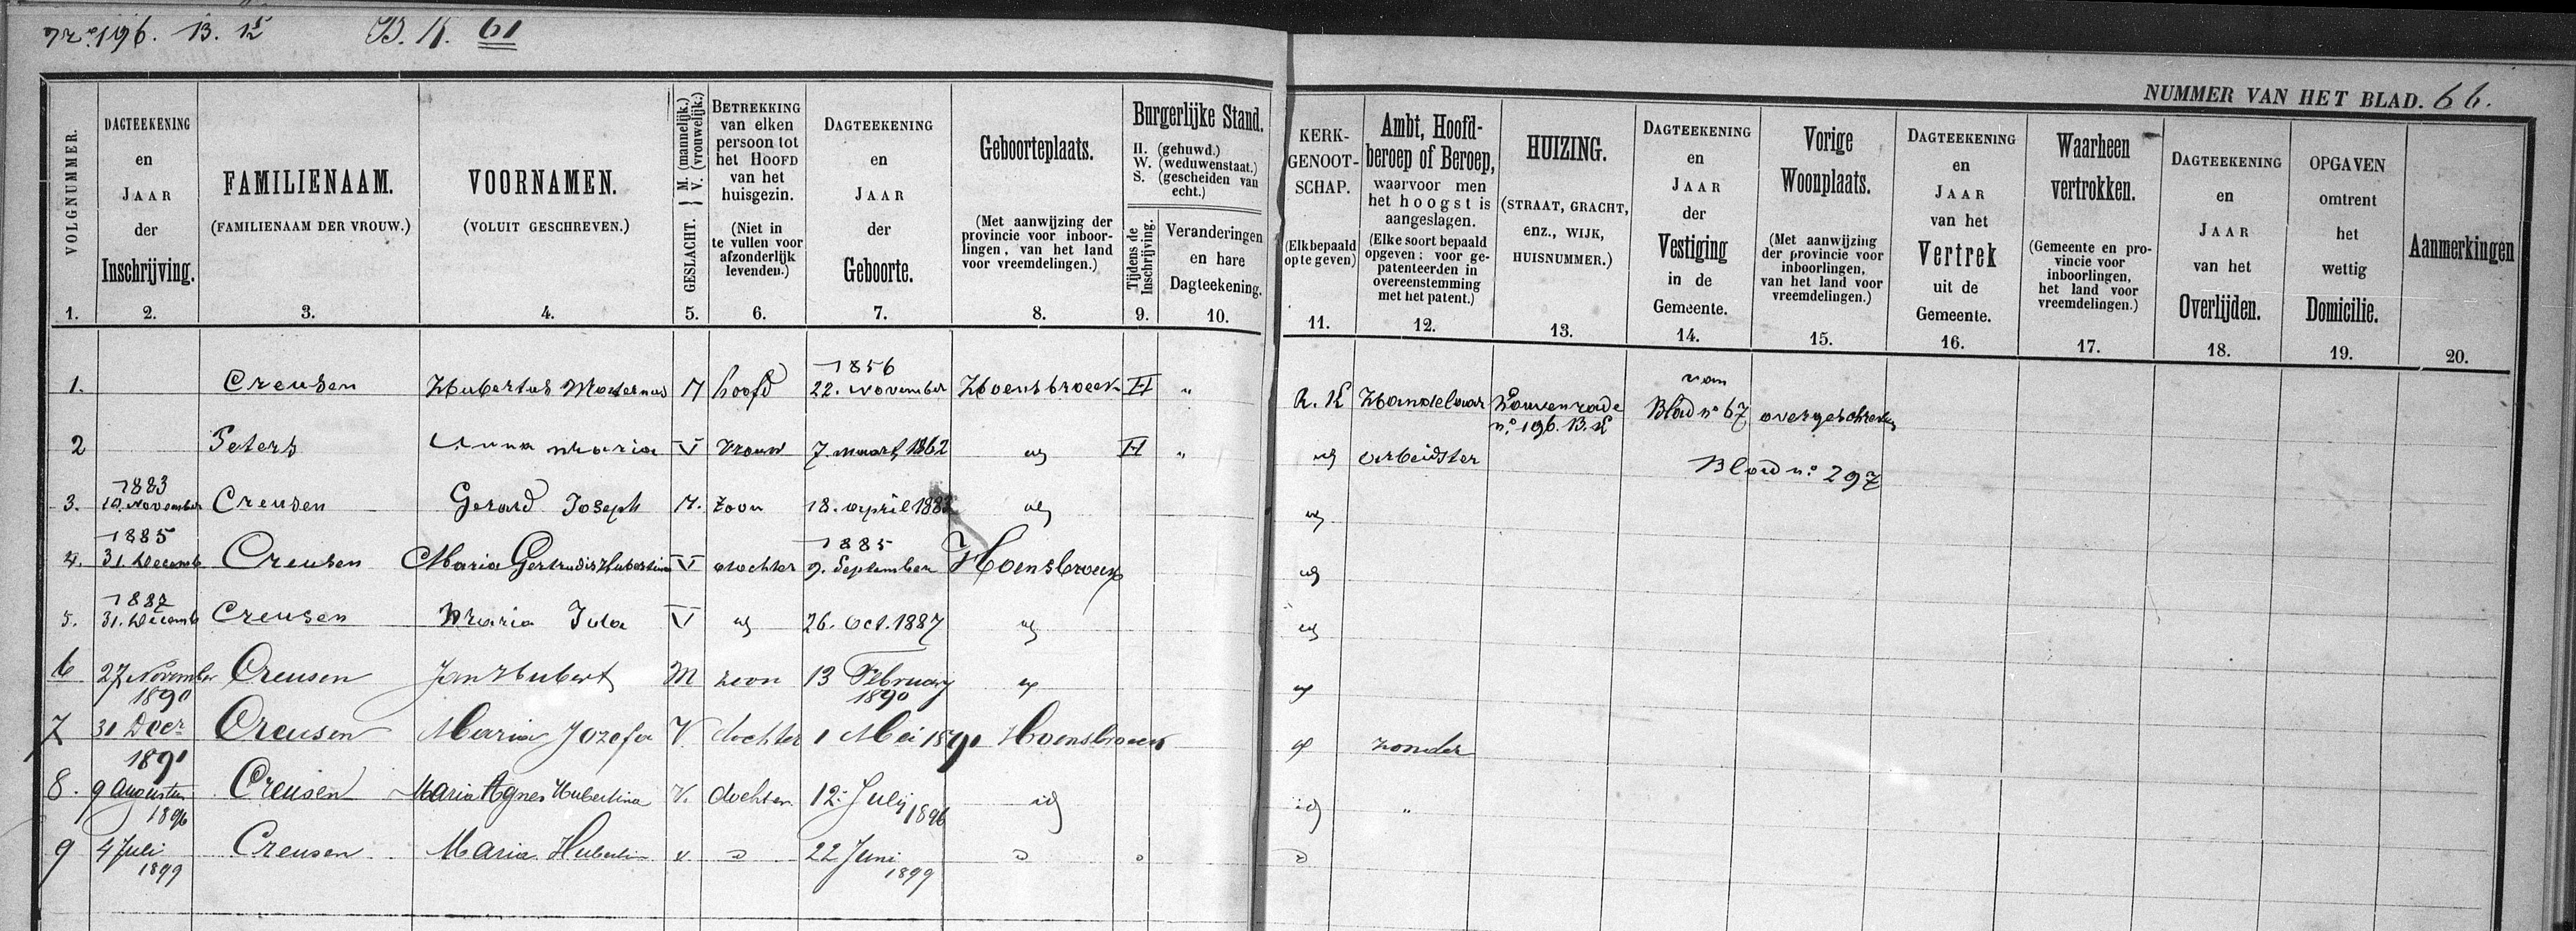 No. 196. B. K. B. K. 61
NUMMER VAN HET BLAD. 66.
VOLGNUMMER. 1.
DAGTEEKENING en JAAR der Inschrijving. 2.
FAMILIENAAM. (FAMILIENAAM DER VROUW.) 3.
VOORNAMEN. (VOLUIT GESCHREVEN.) 4.
GESLACHT. { M. (mannelijk.) V. (vrouwelijk.) 5.
BETREKKING van elken persoon tot het HOOFD van het huisgezin. (Niet in te vullen voor afzonderlijk levenden.) 6.
DAGTEEKENING en JAAR der Geboorte. 7.
Geboorteplaats. (Met aanwijzing der provincie voor inboorlingen, van het land voor vreemdelingen.) 8.
Burgerlijke Stand. H. (gehuwd.) W. (weduwenstaat.) S. (gescheiden van echt.)
Tijdens de Inschrijving. 9.
Veranderingen en hare Dagteekening. 10.
KERK-GENOOT-SCHAP. (Elk bepaald op te geven) 11.
Ambt, Hoofd-beroep of Beroep, waarvoor men het hoogst is aangeslagen. (Elke soort bepaald opgeven: voor ge-patenteerden in overeenstemming met het patent.) 12.
HUIZING. (STRAAT, GRACHT, enz., WIJK, HUISNUMMER.) 13.
DAGTEEKENING en JAAR der Vestiging in de Gemeente. 14.
Vorige Woonplaats. (Met aanwijzing der provincie voor inboorlingen, van het land voor vreemdelingen.) 15.
DAGTEEKENING en JAAR van het Vertrek uit de Gemeente. 16.
Waarheen vertrokken. (Gemeente en pro-vincie voor inboorlingen, het land voor vreemdelingen.) 17.
DAGTEEKENING en JAAR van het Overlijden. 18.
OPGAVEN omtrent het wettig Domicilie. 19.
Aanmerkingen 20.
1. Creusen Hubertus Maternus M hoofd 1856 22. November Hoensbroeck H " R. K Handelaar Louvenrade no. 196. B. K van Blad no 67 overgeschreven
2 Peters Anna Maria V Vrouw 7. maart 1862 id H " id Arbeidster Blad no. 297
3. 1883 10 November Creusen Gerard Joseph M. zoon 18. april 1883 id id
4. 1885 31. Decemb Creusen Maria Gertrudis Hubertina V dochter 1885 9. September Hoensbroeck id
5. 1887 31. Decemb Creusen Maria Ida V id 26. Oct. 1887 id id
6 27 November 1890 Creusen Jan Hubert M zoon 13 February 1890 id id
7 31 Decr 1891 Creusen Maria Jozefa V dochter 1 Mei 1891 Hoensbroeck id zonder
8. 9 Augustus 1896 Creusen Maria Agnes Hubertina V. dochter 12. July 1896 id id "
9 4 Juli 1899 Creusen Maria Hubertin v " 22 Juni 1899 " " "